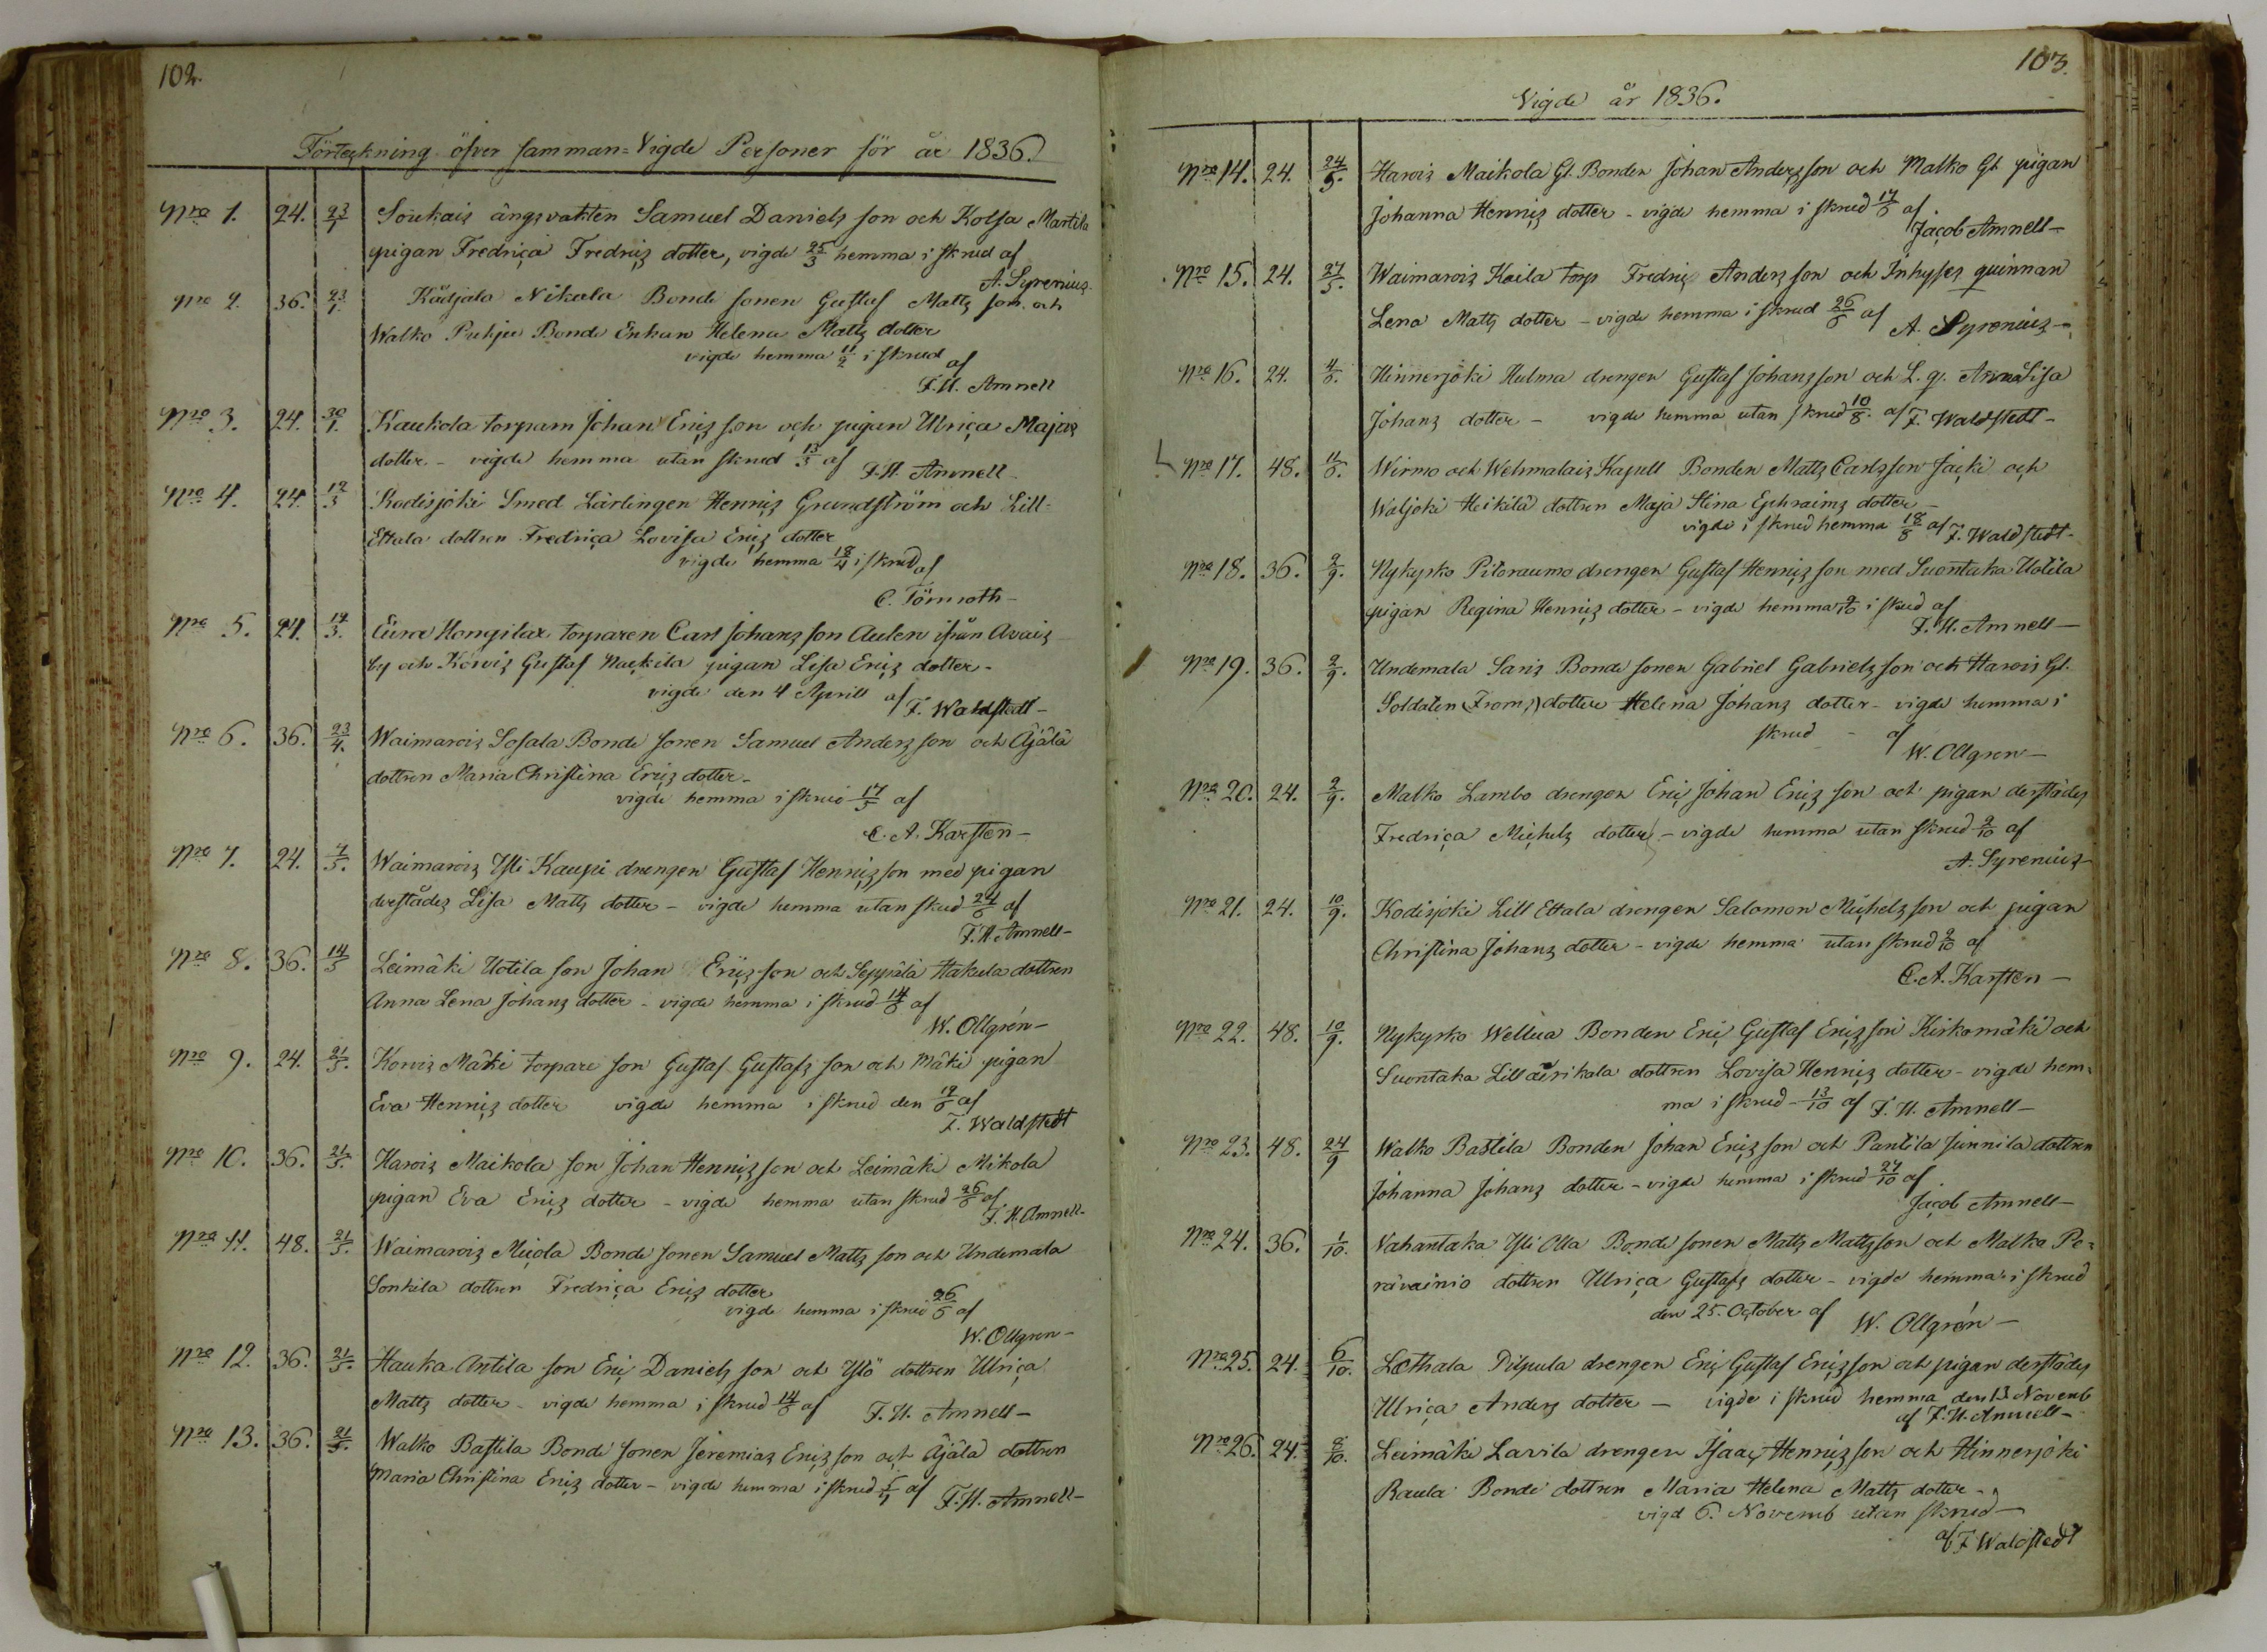 102.
Förteckning öfver samman=Vigde Personer för år 1836.
Nro 1. 24. 23/1 Soukais ängsvakten Samuel Daniels son och Kolsa Martila
pigan Fredrica Fredrics dotter, vigde 25/3 hemma i skrud af
A. Syrenius.
Nro 2. 36. 23/1. Kådjala Nikula Bonde sonen Gustaf Matts son och
Walko Puhjee Bonde Enkan Helena Matts dotter
vigde hemma 11/2 i skrud af
F.H. Amnell
Nro 3. 24. 30/1. Kaukola torparn Johan Erics son och pigan Ulrica Majas
dotter. - vigde hemma utan skrud 13/3 af F.H. Amnell
Nro 4. 24. 12/3 Kodisjoki Smed Lärlingen Henric Grundström och Lill-
Ettala dottren Fredrica Lovisa Erics dotter
vigde hemma 18/4 i skrud af
C. Törnroth-
Nro 5. 24. 12/3. Eura Hongilax torparen Carl Johans son Aulen ifrån Avais
by och Korvis Gustaf pigan Lisa Erics dotter-
vigde den 4 Aprill af F. Waldstedt-
Nro 6. 36. 23/4. Waimarois Sosala Bonde sonen Samuel Anders son och Äjälä
dottren Maria Christina Erics dotter-
vigde hemma i skrud 17/5 af
C. A. Karsten-
Nro 7. 24. 7/5. Waimarois Ysti Kaupi drengen Gustaf Henrics son med pigan
derstädes Lisa Matts dotter - vigde hemma utan skrud 24/6 af
F.H. Amnell-
Nro 8. 36. 14/5 Leimäki Uotila son Johan Erics son och Seppälä Hakula dottren
Anna Lena Johans dotter - vigde hemma i skrud 14/6 af
W. Ollgrén-
Nro 9. 24. 21/5. Korvis Mäki torpare son Gustaf Gustafs son och Mäki pigan
Eva Henrics dotter vigde hemma i skrud den 19/6 af
F. Waldstedt
Nro 10. 36. 21/5. Harois Maikola son Johan Henrics son och Leimäki Mikola
pigan Eva Erics dotter - vigde hemma utan skrud 26/6 af
F.H. Amnell-
Nro 11. 48. 21/5. Waimarois Micola Bonde sonen Samuel Matts son och Undemala
Sonkila dottren Fredrica Erics dotter
vigde hemma i skrud 26/6 af
W. Ollgren-
Nro 12. 36. 21/5. Hauka Antila son Eric Daniels son och Ylö dottren Ulrica
Matts dotter - vigde hemma i skrud 14/6 af F.H. Amnell-
Nro 13. 36. 21/5. Walko Bastila Bonde sonen Jeremias Erics son och Äjälä dottren
Maria Christina Erics dotter - vigde hemma i skrud af F.H. Amnell-
103.
Vigde år 1836.
Nro 14. 24. 24/5. Harois Maikola Gl. Bonden Johan Anders son och Malko Gl. pigan
Johanna Henrics dotter - vigde hemma i skrud 17/6 af
Jacob Amnell-
Nro 15. 24. 27/5. Waimarois Koila torp Fredric Anders son och Inhyses quinnan
Lena Matts dotter - vigde hemma i skrud 26/6 af A. Syrenius-
Nro 16. 24. 4/6. Hinnerjoki Hulma drengen Gustaf Johans son och L. q. Anna Lisa
Johans dotter - vigde hemma utan skrud 10/8 af F. Waldstedt-
Nro 17. 48. 11/6. Wirmo och Wehmalais Kapell Bonden Matts Carlsson Jacki och
Waljoki Heikilä dottren Maja Stina Ephraims dotter-
vigde i skrud hemma 18/8 af F. Waldstedt-
Nro 18. 36. 2/9. Nykyrko Pitoraumo drengen Gustaf Henrics son med Suontaka Uotila
pigan Regina Henrics dotter - vigde hemma 9/10 i skrud af
F.H. Amnell-
Nro 19. 36. 2/9. Undemala Saris Bonde sonen Gabriel Gabriels son och Harois Gl.
Soldaten (Froms) dotter Helena Johans dotter - vigde hemma i
skrud - af
W. Ollgren-
Nro 20. 24. 2/9. Malko Lambo drengen Eric Johan Erics son och pigan derstädes
Fredrica Michels dotter - vigde hemma utan skrud 2/10 af
A. Syrenius
Nro 21. 24. 10/9. Kodisjoki Lill Ettala drengen Salomon Michels son och pigan
Christina Johans dotter - vigde hemma utan skrud 2/10 af
C. A. Karsten-
Nro 22. 48. 10/9. Nykyrko Wellua Bonden Eric Gustaf Erics son Kirkomäki och
Suontaka Lill dottren Lovisa Henrics dotter - vigde hem-
ma i skrud - 13/10 af F.H. Amnell-
Nro 23. 48. 24/9 Walko Bastila Bonden Johan Erics son och Pantila Junnila dottren
Johanna Johans dotter - vigde hemma i skrud 27/10 af
Jacob Amnell-
Nro 24. 36. 1/10. Vahantaka Ysti Olla Bonde sonen Matts Mattsson och Malko Pe-
rävainio dottren Ulrica Gustafs dotter - vigde hemma i skrud
den 25. October af W. Ollgrén-
Nro 25. 24. 6/10. Lethala Pilpula drengen Eric Gustaf Erics son och pigan derstädes
Ulrica Anders dotter - vigde i skrud hemma den 13 Novemb
af F.H. Amnell-
Nro 26. 24. 8/10. Leimäki Lavila drengen Isaac Henrics son och Hinnerjoki
Raula Bonde dottren Maria Helena Matts dotter-
vigd 6. Novemb utan skrud-
af F Waldstedt